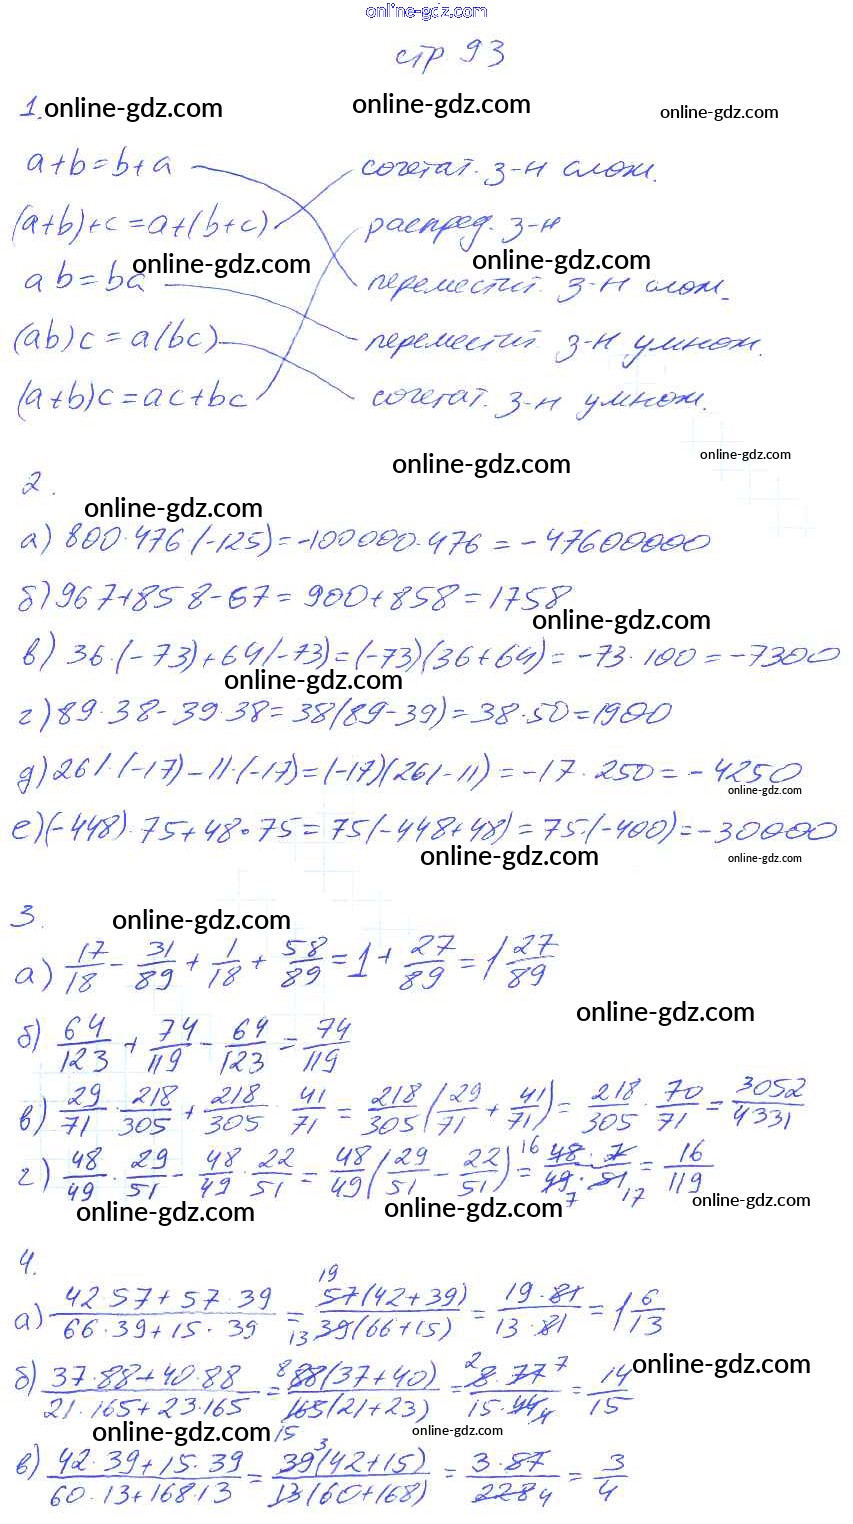 online-gdz.com
стр 93
1. online-gdz.com online-gdz.com online-gdz.com
a+b=b+a сочетат. з-н слож.
(a+b)+c=a+(b+c) распред. з-н
online-gdz.com online-gdz.com
ab=ba переместит. з-н слож.
(ab)c=a(bc) переместит. з-н умнож.
(a+b)c=ac+bc сочетат. з-н умнож.
online-gdz.com online-gdz.com
2.
online-gdz.com
а) 800·476·(-125)=-100000·476=-47600000
б) 967+858-67=900+858=1758
online-gdz.com
в) 36·(-73)+64(-73)=(-73)(36+64)=-73·100=-7300
online-gdz.com
г) 89·38-39·38=38(89-39)=38·50=1900
д) 261·(-17)-11·(-17)=(-17)(261-11)=-17·250=-4250
online-gdz.com
е) (-448)·75+48·75=75(-448+48)=75·(-400)=-30000
online-gdz.com online-gdz.com
3. online-gdz.com
а) 17/18 - 31/89 + 1/18 + 58/89 = 1 + 27/89 = 1 27/89
online-gdz.com
б) 64/123 + 74/119 - 64/123 = 74/119
в) 29/71 · 218/305 + 218/305 · 41/71 = 218/305 (29/71 + 41/71) = 218/305 · 70/71 = 3052/4331
г) 48/49 · 29/51 - 48/49 · 22/51 = 48/49 (29/51 - 22/51) = 16 48·7/49·51 7 17 = 16/119
online-gdz.com online-gdz.com online-gdz.com
4.
а) 42·57+57·39/66·39+15·39 = 19 57(42+39)/13 39(66+15) = 19·81/13·81 = 1 6/13
online-gdz.com
б) 37·88+40·88/21·165+23·165 = 8 88(37+40)/165(21+23) 15 = 2 8·77 7/15·44 4 = 14/15
online-gdz.com online-gdz.com
в) 42·39+15·39/60·13+168·13 = 39 3(42+15)/13(60+168) = 3·87/228 4 = 3/4